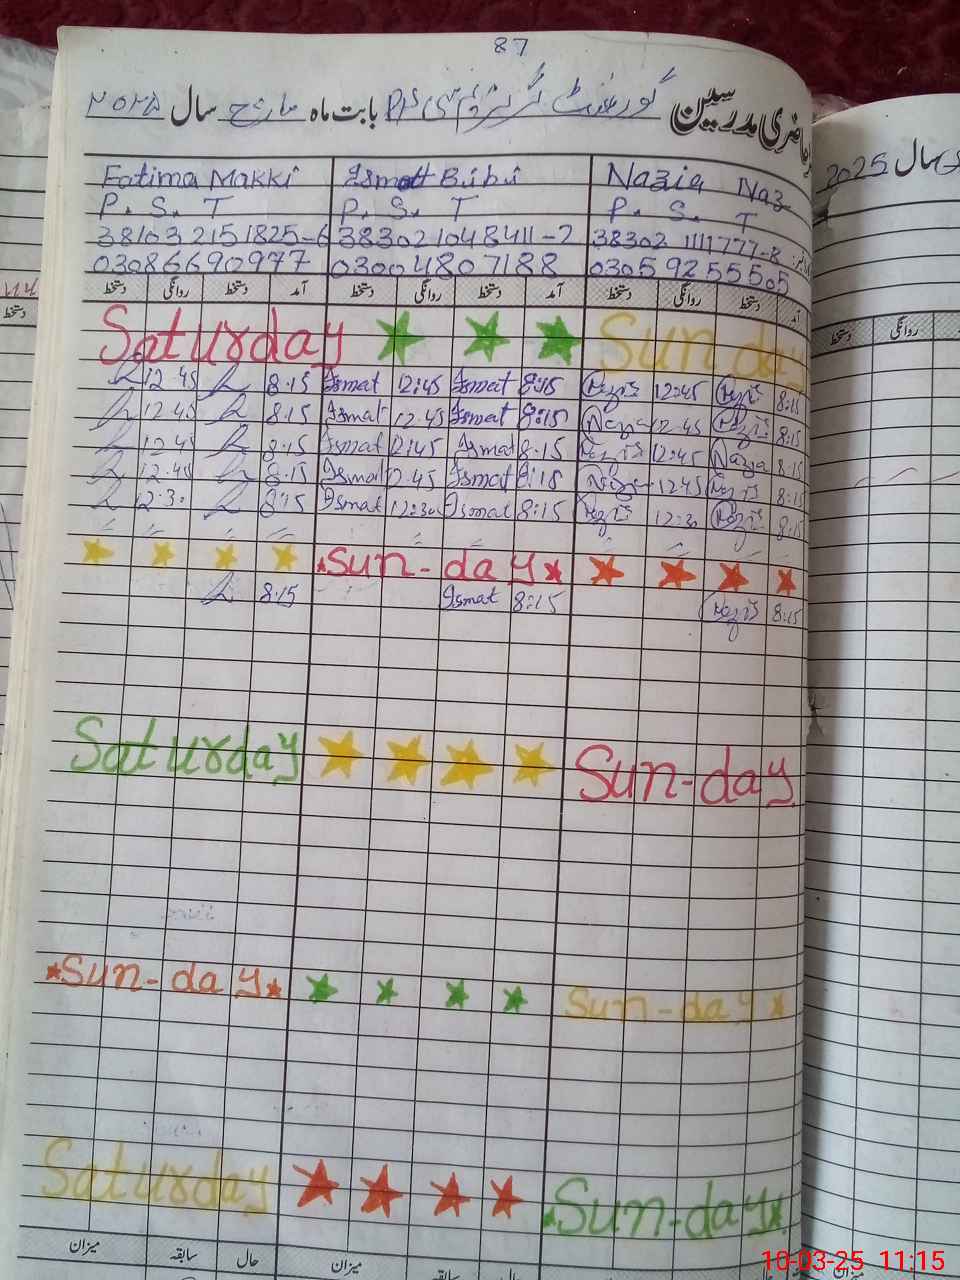 87
حاضری مدرسین گورنمنٹ گرلز بابت ماہ مارچ سال ۲۰۲۵
سال 2025
Fatima Makki Ismat Bibi Nazia Naz
P. S. T P. S. T P. S. T
381032151825-6 383021048411-2 38302 1111777-8
03086690977 03004807188 03059255505
دستخط روانگی دستخط آمد دستخط روانگی دستخط آمد دستخط روانگی دستخط آمد
دستخط روانگی
Saturday Sunday
12-45 8:15 Ismat 12:45 Ismat 8:15 12:45 8:15
12-45 8:15 Ismat 12-45 Ismat 8:15 12-45 8:15
12-45 8:15 Ismat 12:45 Ismat 8-15 12:45 Nazia 8:15
12-45 8:15 Ismat 12-45 Ismat 12:45 8:15
12-30 8:15 Ismat 12:30 Ismat 8:15 12:30 8:15
Sun-day
8:15 Ismat 8:15 8:15
Saturday Sun-day
Sun-day Sun-day
Saturday Sun-day
میزان سابقہ حال میزان سابقہ حال میزان
10-03-25 11:15